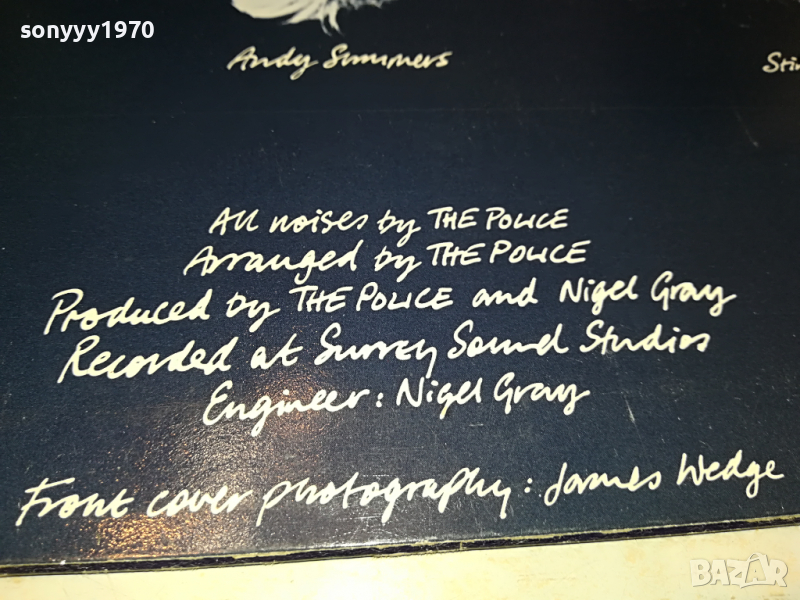 sonyyy1970
Andy Summers
Stin
All noises by THE POLICE
Arranged by THE POLICE
Produced by THE POLICE and Nigel Gray
Recorded at Surrey Sound Studios
Engineer: Nigel Gray
Front cover photography: James Wedge
BAZAR